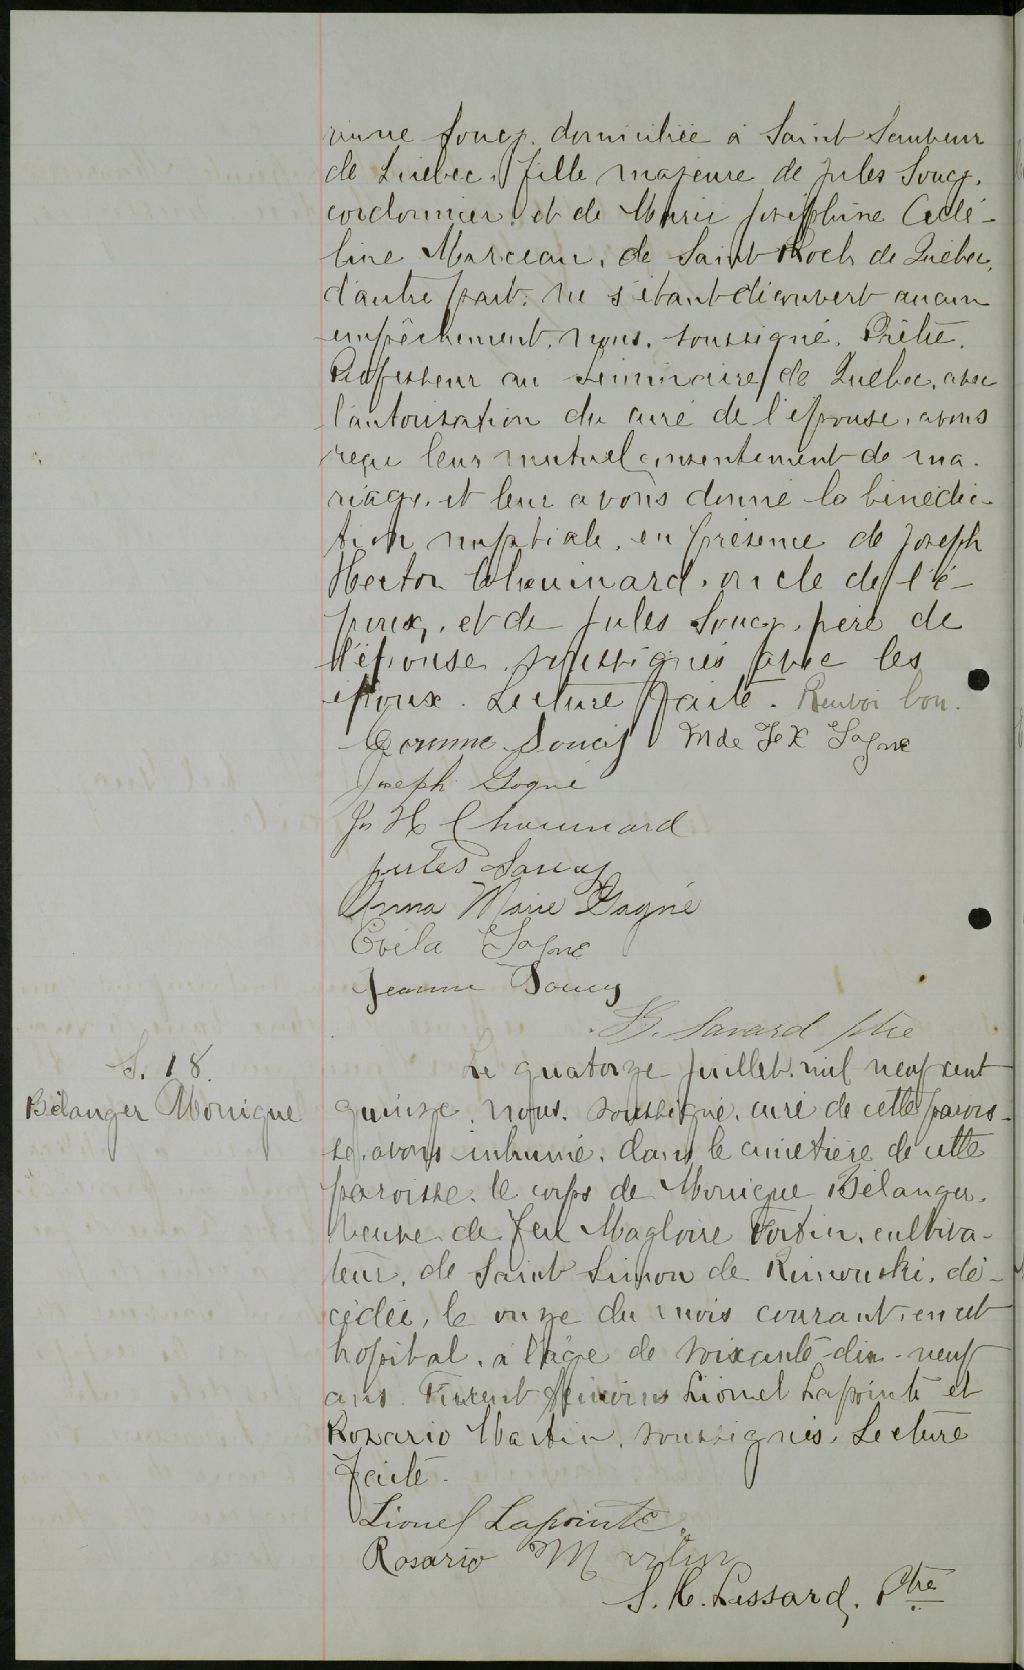 rinne Soucy, domiciliée à Saint Sauveur
de Québec, fille majeure de Jules Soucy,
cordonnier, et de Marie Joséphine Adé-
line Marceau, de Saint Roch de Québec,
d'autre part, ne s'étant découvert aucun
empêchement, nous, soussigné, Prêtre,
Professeur au Séminaire de Québec, avec
l'autorisation du curé de l'épouse, avons
reçu leur mutuel consentement de ma-
riage, et leur avons donné la bénédic-
tion nuptiale, en présence de Joseph
Hector Chouinard, oncle de l'é-
poux, et de Jules Soucy, père de
l'épouse, soussignés avec les
époux. Lecture faite. Renvoi bon.
Corinne Soucy Mde F X Gagné
Joseph Gagné
Js H Chouinard
Jules Soucy
Anna Marie Gagné
Gagné
Jeanne Soucy
Savard ptre
S. 18. Le quatorze juillet, mil neuf cent
Bélanger Monique quinze, nous, soussigné, curé de cette parois-
se, avons inhumé, dans le cimetière de cette
paroisse, le corps de Monique Bélanger,
veuve de feu Magloire Fortin, cultiva-
teur, de Saint Simon de Rimouski, dé-
cédée, le onze du mois courant, en cet
hospital, à l'âge de soixante-dix-neuf
ans. Furent témoins Lionel Lapointe et
Rosario Martin, soussignés. Lecture
faite.
Lionel Lapointe
Rosario Martin
Lessard, Ptre